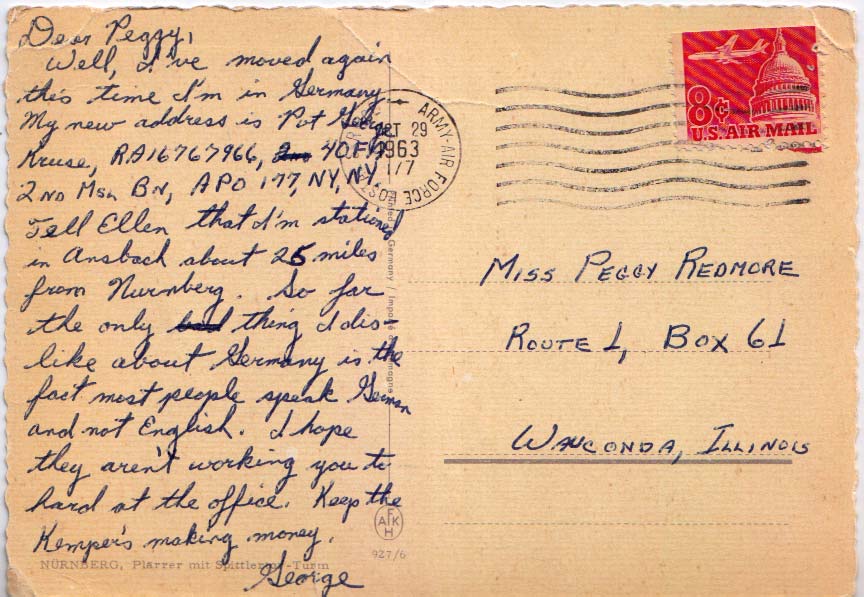 Dear Peggy,
Well, I've moved again
this time I'm in Germany
My new address is Pvt George
Kruse, RA16767966, 40 FA
2ND MSL BN, APO 177, NY, NY
Tell Ellen that I'm stationed
in Ansbach about 25 miles
from Nurnberg. So far
the only bad thing I dis-
like about Germany is the
fact most people speak German
and not English. I hope
they aren't working you to
hard at the office. Keep the
Kemper's making money.
George
NÜRNBERG, Plärrer mit Spittlertor-Turm
ARMY-AIR FORCE
OCT 29
1963
8¢
U.S. AIR MAIL
MISS PEGGY REDMORE
ROUTE 1, BOX 61
WAUCONDA, ILLINOIS
AFKH
927/6